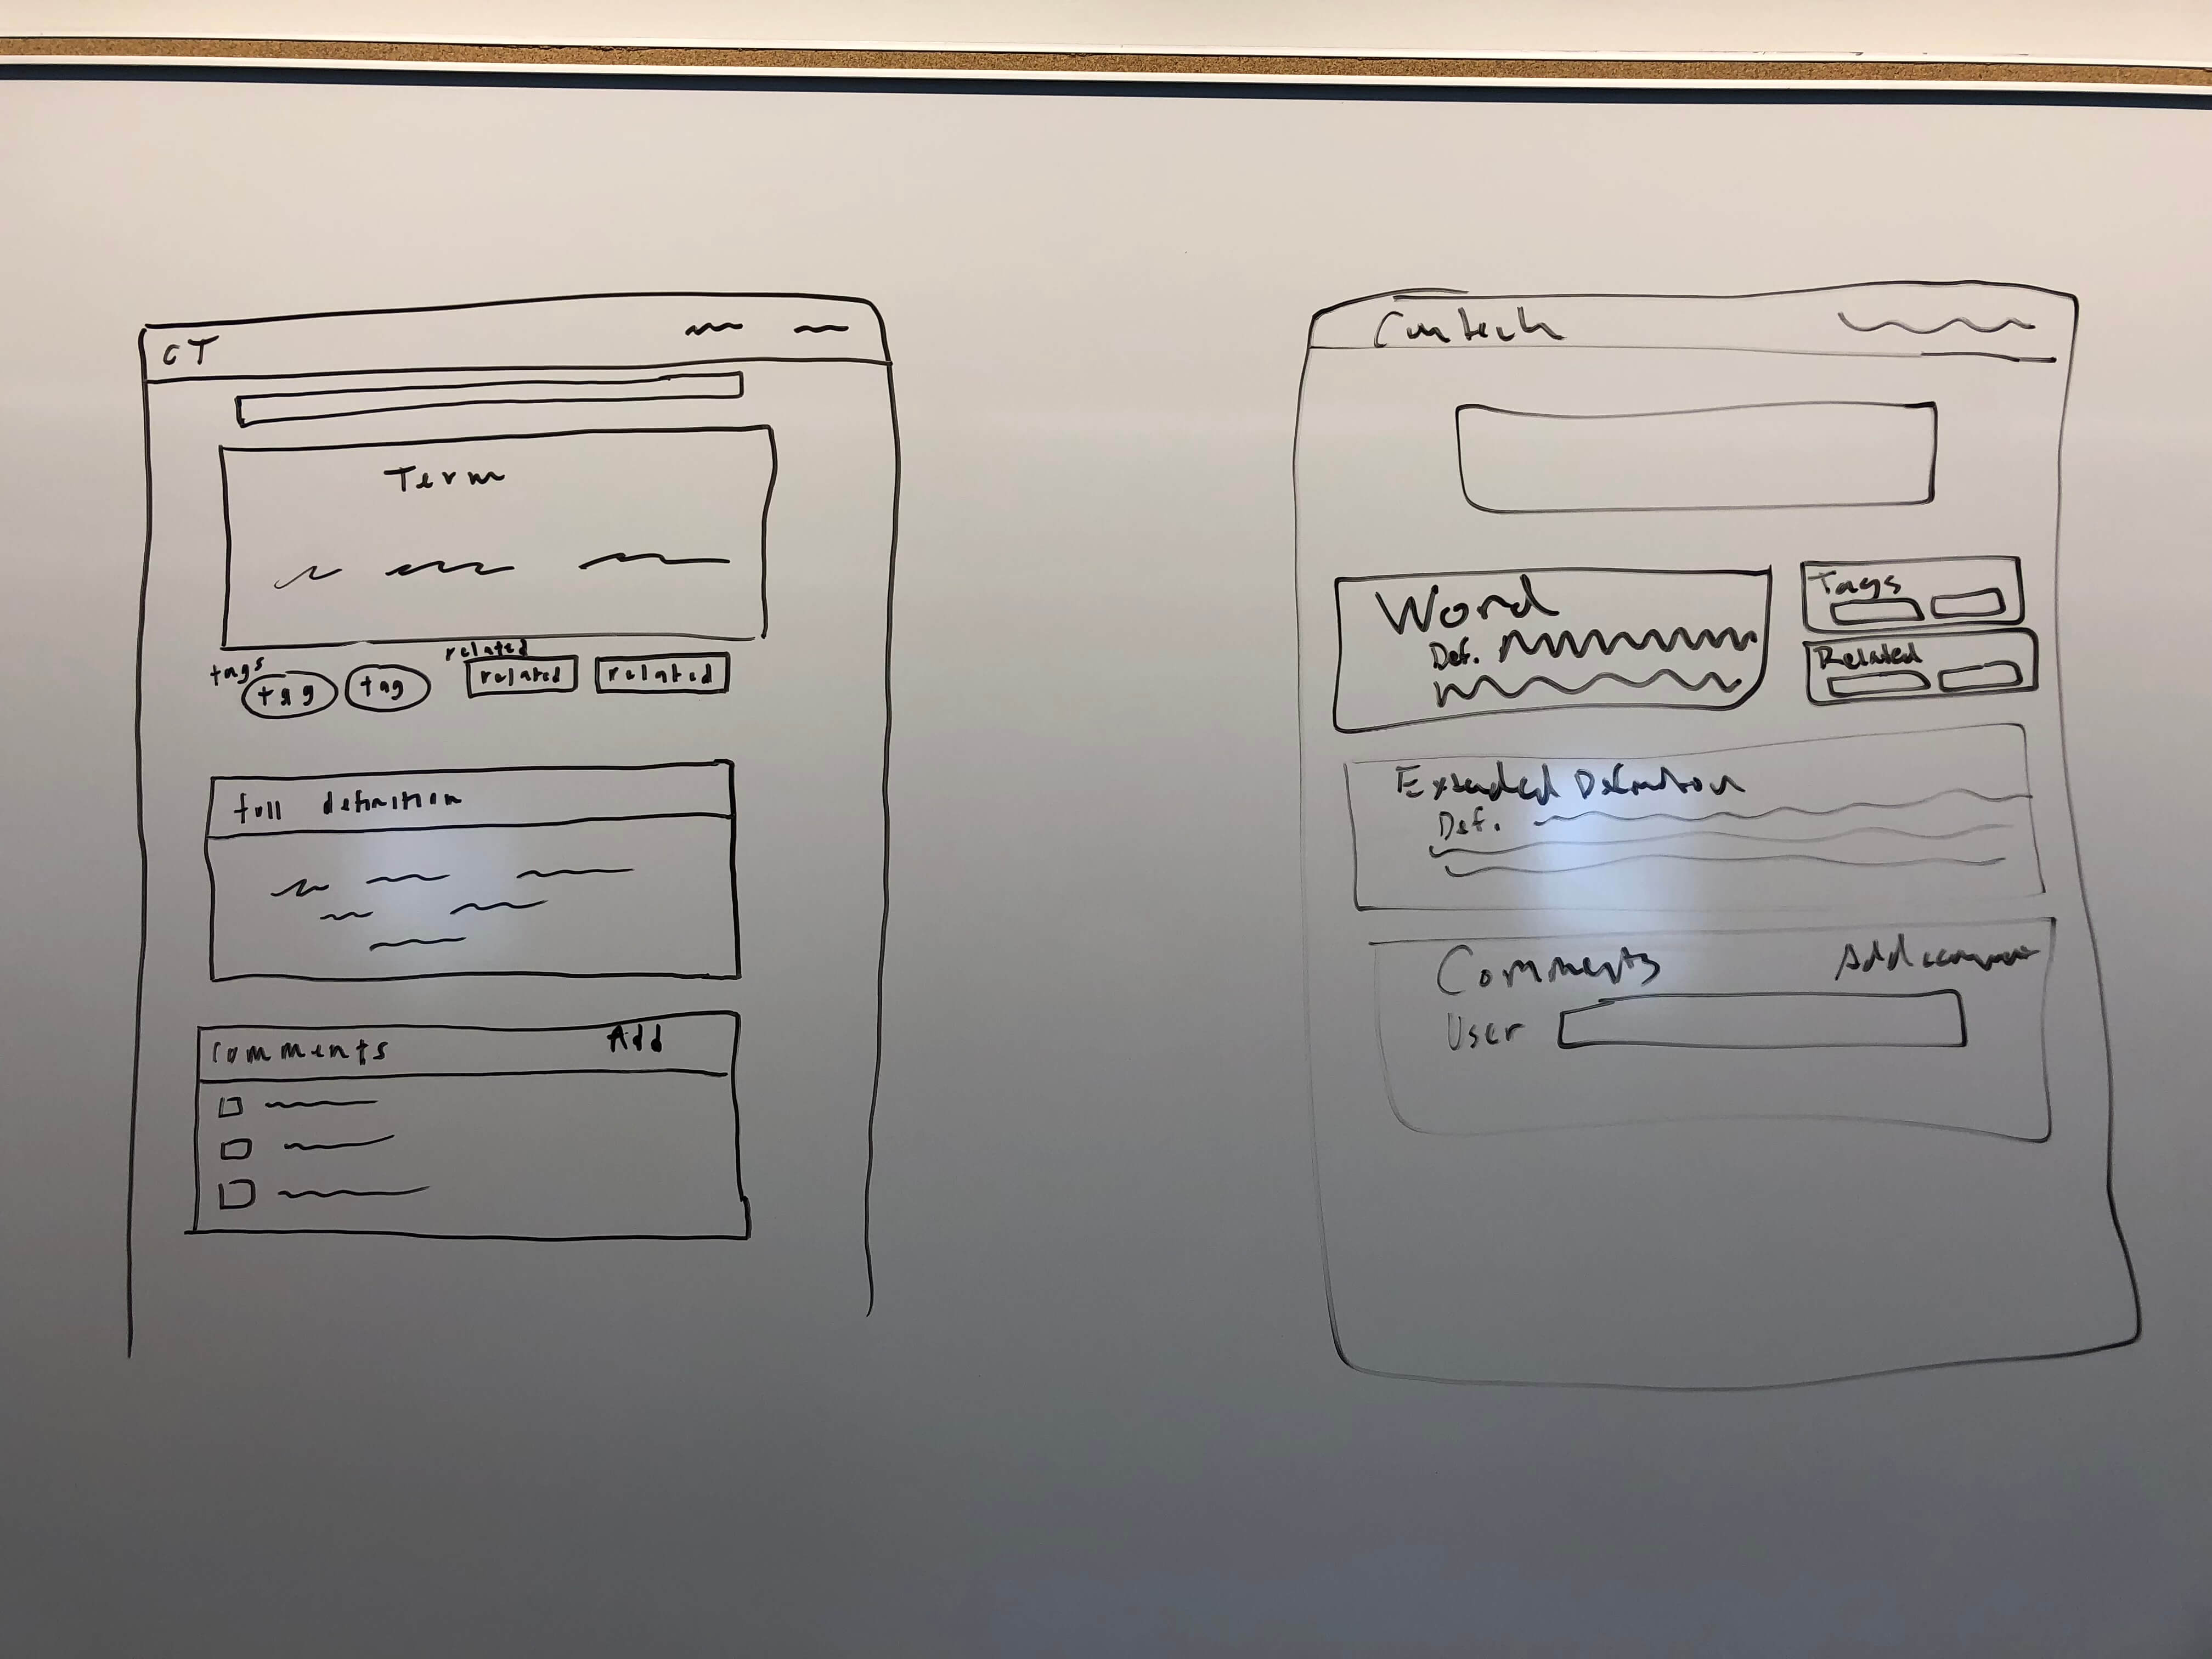 CT
Term
related
tags
tag tag related related
full definition
comments Add
Word
Def.
Tags
Related
Extended Definition
Def.
Comments Add comment
User